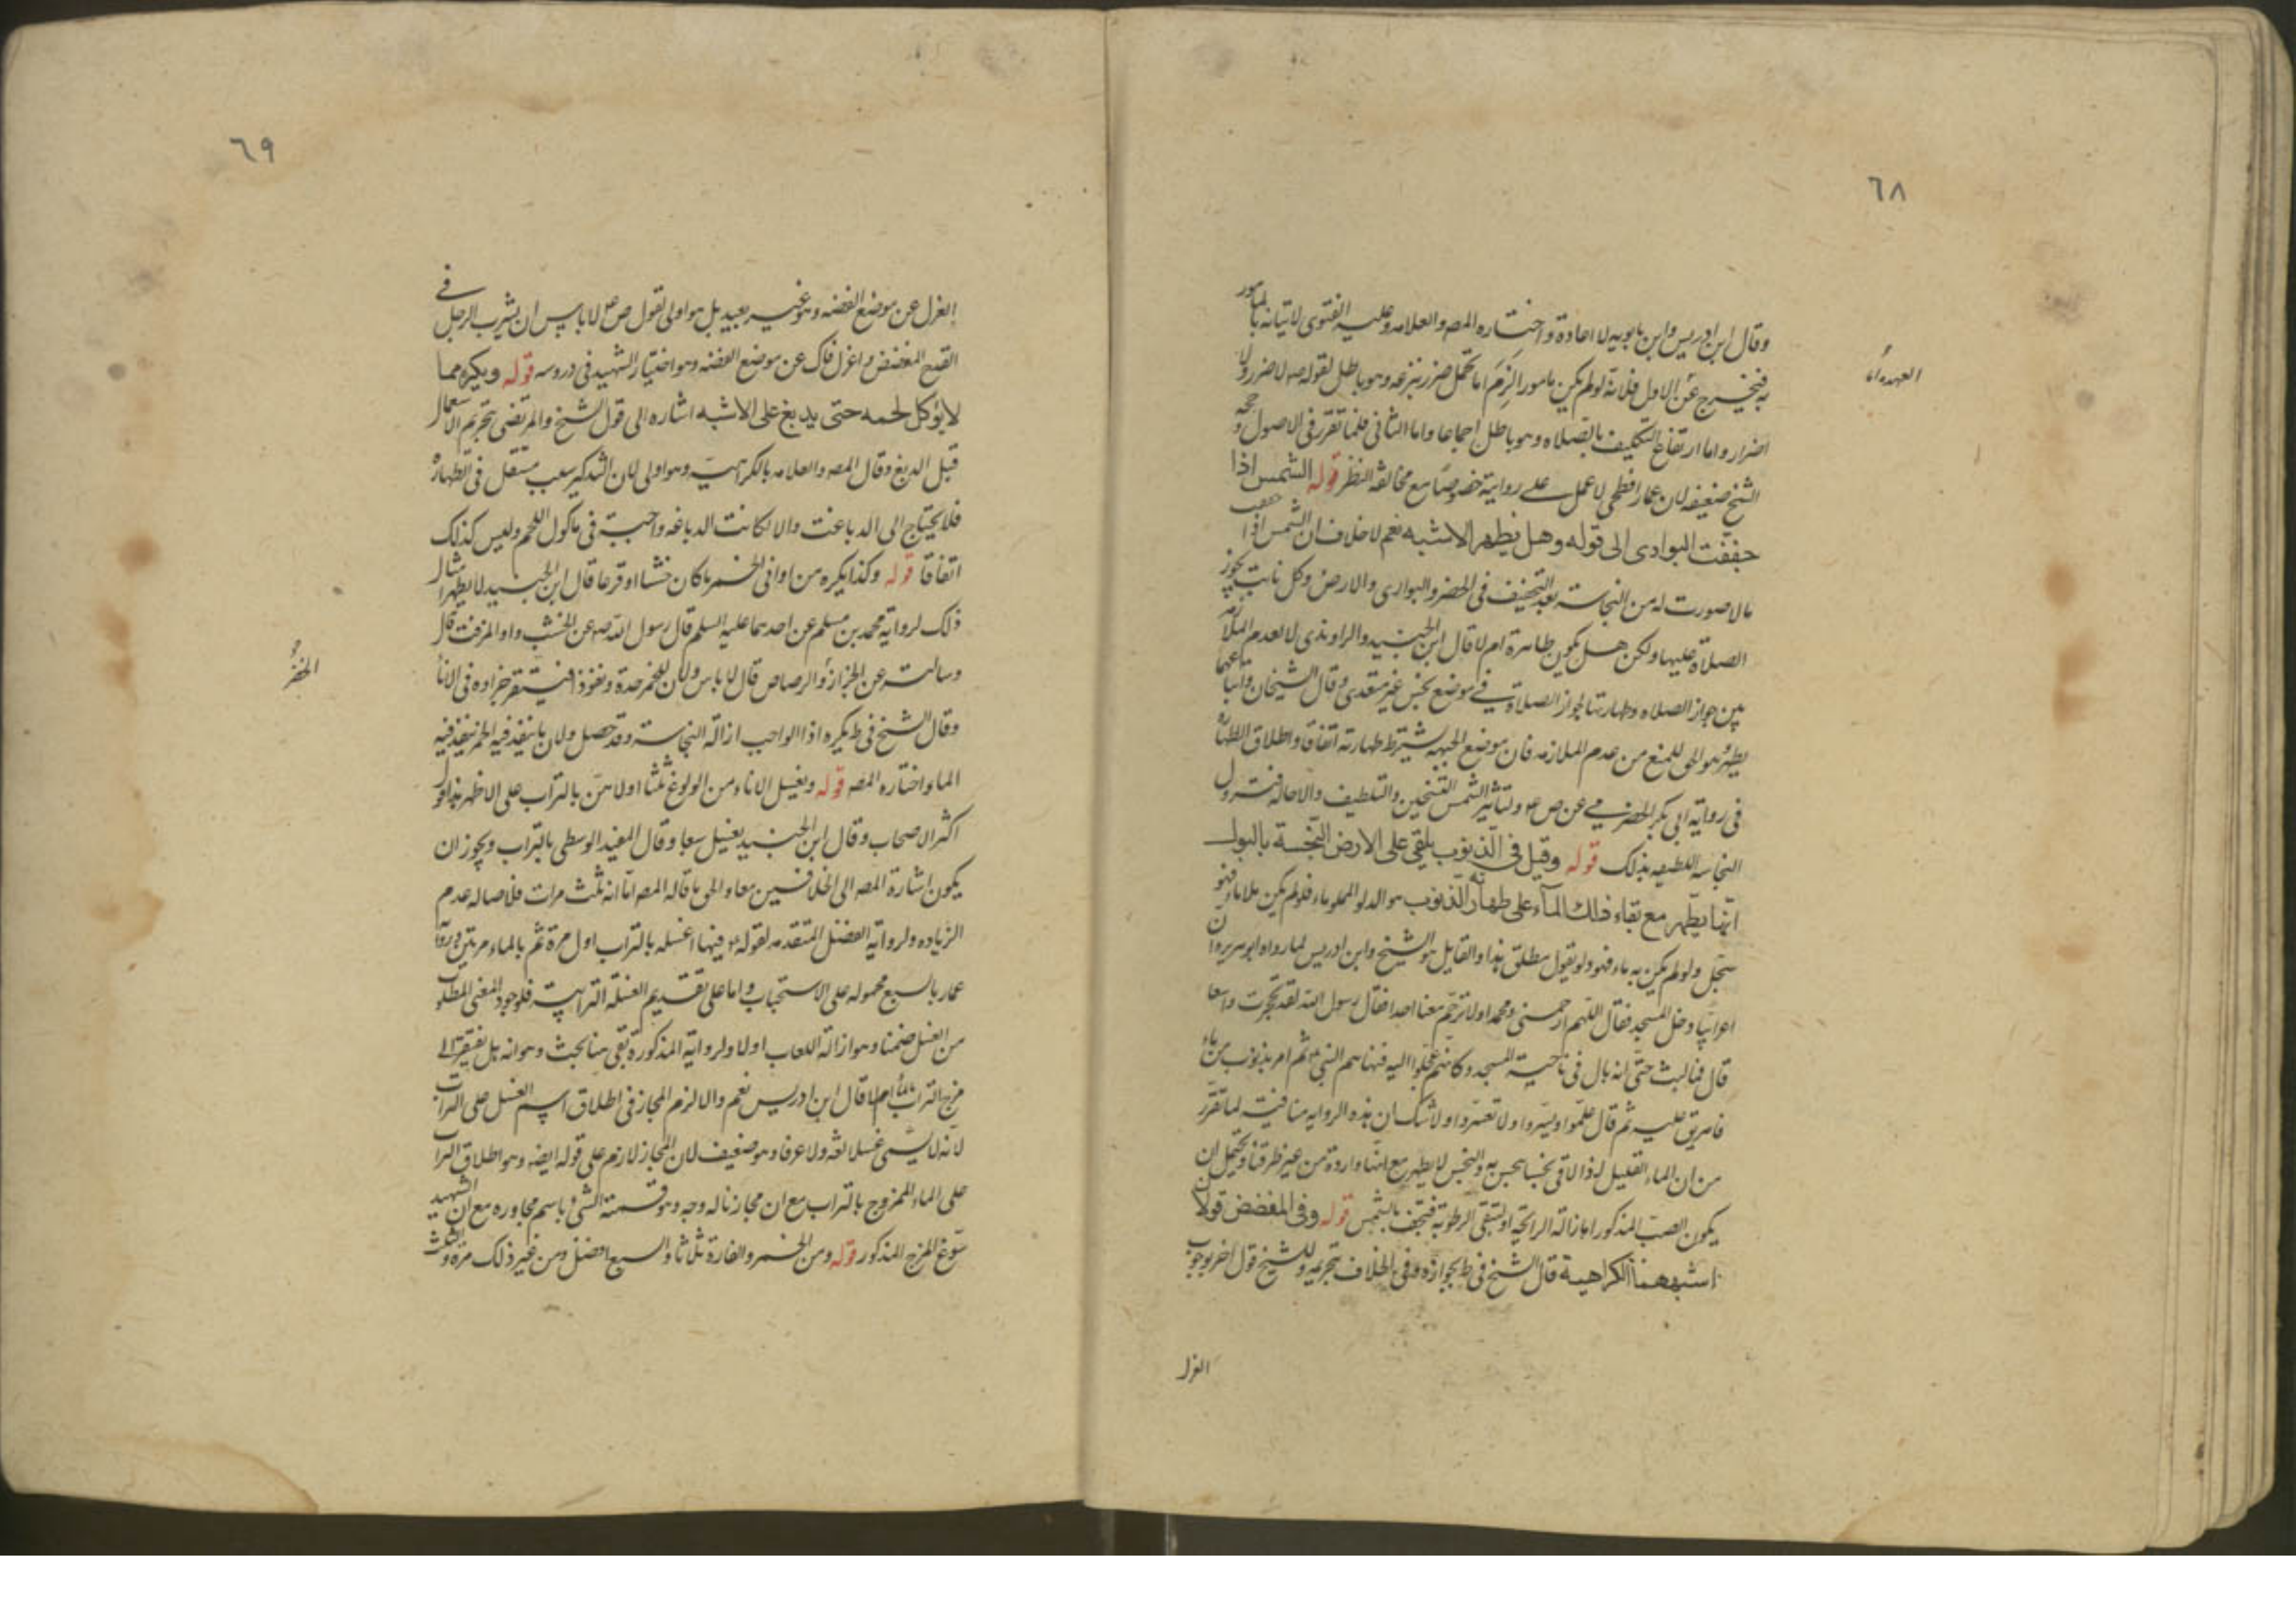 ٦٨
وقال ابن ادريس وابن بابويه لا اعادة واختاره المصه والعلامه وعليه الفتوى لاتيانه بالمامور
به فيخرج عن الاول فلانه لو لم يكن مامورا لزم اما تحمل ضرر بنزعه وهو باطل لقوله صه لا ضرر ولا
العهدة اما
اضرار واما ارتفاع التكليف بالصلاه وهو باطل اجماعا واما الثاني فلما تقرر في الاصول وحجه
الشيخ ضعيفه لان عمار افطحي لا عمل على روايته خصوصا مع مخالفة النظر قوله الشمس اذا
جففت البوادى الى قوله وهل يطهر الاشبه نعم لا خلاف ان الشمس اذا جففت
مالا صورت له من النجاسه بعد التجفيف في الحضر والبوارى والارض وكل نابت يجوز
الصلاة عليها ولكن هل يكون طاهرة ام لا قال ابن الجنيد والراوندى لا لعدم الملازمه
بين جواز الصلاه وطهارتها لجواز الصلاة في موضع نجس غير متعدى وقال الشيخان واتباعهما
يطهر وهو الحق للمنع من عدم الملازمه فان موضع الجبهه يشترط طهارته اتفاقا واطلاق الطهارة
في رواية ابى بكر الحضرمي عن ص ع ولتاثير الشمس التسخين والتلطيف والاحاله فتزول
النجاسه اللطيفه بذلك قوله وقيل في الذنوب يلقى على الارض النجسة بالبول
انها يطهر مع بقاء ذلك الماء على طهارته الذنوب هو الدلو المملو ماء فلو لم يكن ملانا فهو
سجل ولو لم يكن به ماء فهو دلو بقول مطلق هذا والقايل هو الشيخ وابن ادريس لما رواه ابو هريره ان
اعرابيا دخل المسجد فقال اللهم ارحمني ومحمدا ولا ترحم معنا احدا فقال رسول الله لقد تحجرت واسعا
قال فما لبث حتى انه بال في ناحية المسجد وكانهم عجلوا اليه فنهاهم النبي ثم امر بذنوب من ماء
فاهريق عليه ثم قال علموا ويسروا ولا تعسروا ولا شك ان هذه الروايه منافية لما تقرر
من ان الماء القليل اذا لاقى نجسا نجس به والنجس لا يطهر مع انها واردة من غير طرقنا ويحتمل ان
يكون الصب المذكور لازالة الرائحة او لتبقى الرطوبة فتجف بالشمس قوله وفي المفضض قولان
اشبههما الكراهية قال الشيخ في ط بجوازه وفي الخلاف بتحريمه وللشيخ قول اخر بوجوب
العزل
٦٩
العزل عن موضع الفضه وهو غير بعيد بل هو اولى لقول ص ع لا باس ان يشرب الرجل في
القدح المفضض واعزل فاك عن موضع الفضه وهو اختيار الشهيد في دروسه قوله ويكره مما
لا يؤكل لحمه حتى يدبغ على الاشبه اشاره الى قول الشيخ والمرتضى بتحريم الاستعمال
قبل الدبغ وقال المصه والعلامه بالكراهية وهو اولى لان التذكيه سبب مستقل في الطهارة
فلا يحتاج الى الدباغت والا لكانت الدباغه واجبة في ماكول اللحم وليس كذلك
اتفاقا قوله وكذا يكره من اوانى الخمر ما كان خشبا او قرعا قال ابن الجنيد لا يطهر امثال
ذلك لرواية محمد بن مسلم عن احدهما عليه السلم قال رسول الله صه عن الخشب واو المزفت قال
وسالته عن الجرار والرصاص قال لا باس ولان للخمر حدة ونفوذا فيستقر اجزاوه في الانا
الخضر
وقال الشيخ في ط يكره اذا الواجب ازالة النجاسه وقد حصل ولان ما ينفذ فيه الخمر ينفذ فيه
الماء واختاره المصه قوله ويغسل الاناء من الولوغ ثلثا اولاهن بالتراب على الاظهر هذا قول
اكثر الاصحاب وقال ابن الجنيد يغسل سبعا وقال المفيد الوسطى بالتراب ويجوز ان
يكون اشارة المصه الى الخلافين معا والحق ما قاله المصه اما انه ثلث مرات فلاصاله عدم
الزياده ولرواية الفضل المتقدمه لقوله ع فيها اغسله بالتراب اول مرة ثم بالماء مرتين ورواية
عمار بالسبع محموله على الاستحباب واما على تقديم الغسلة الترابية فلوجود المعنى المطلوب
من الغسل ضمنا وهو ازالة اللعاب اولا ولرواية المذكورة بقى هنا بحث وهو انه هل يفتقر الى
مزج التراب بالماء ام لا قال ابن ادريس نعم والا لزم المجاز في اطلاق اسم الغسل على التراب
لانه لا يسمى غسلا لغه ولا عرفا وهو ضعيف لان المجاز لازم على قوله ايضه وهو اطلاق التراب
على الماء الممزوج بالتراب مع ان مجازنا له وجه وهو تسمية الشئ باسم مجاوره مع ان الشهيد
سوغ المزج المذكور قوله ومن الخمر والفارة ثلاثا والسبع افضل ومن غير ذلك مرة والثلث